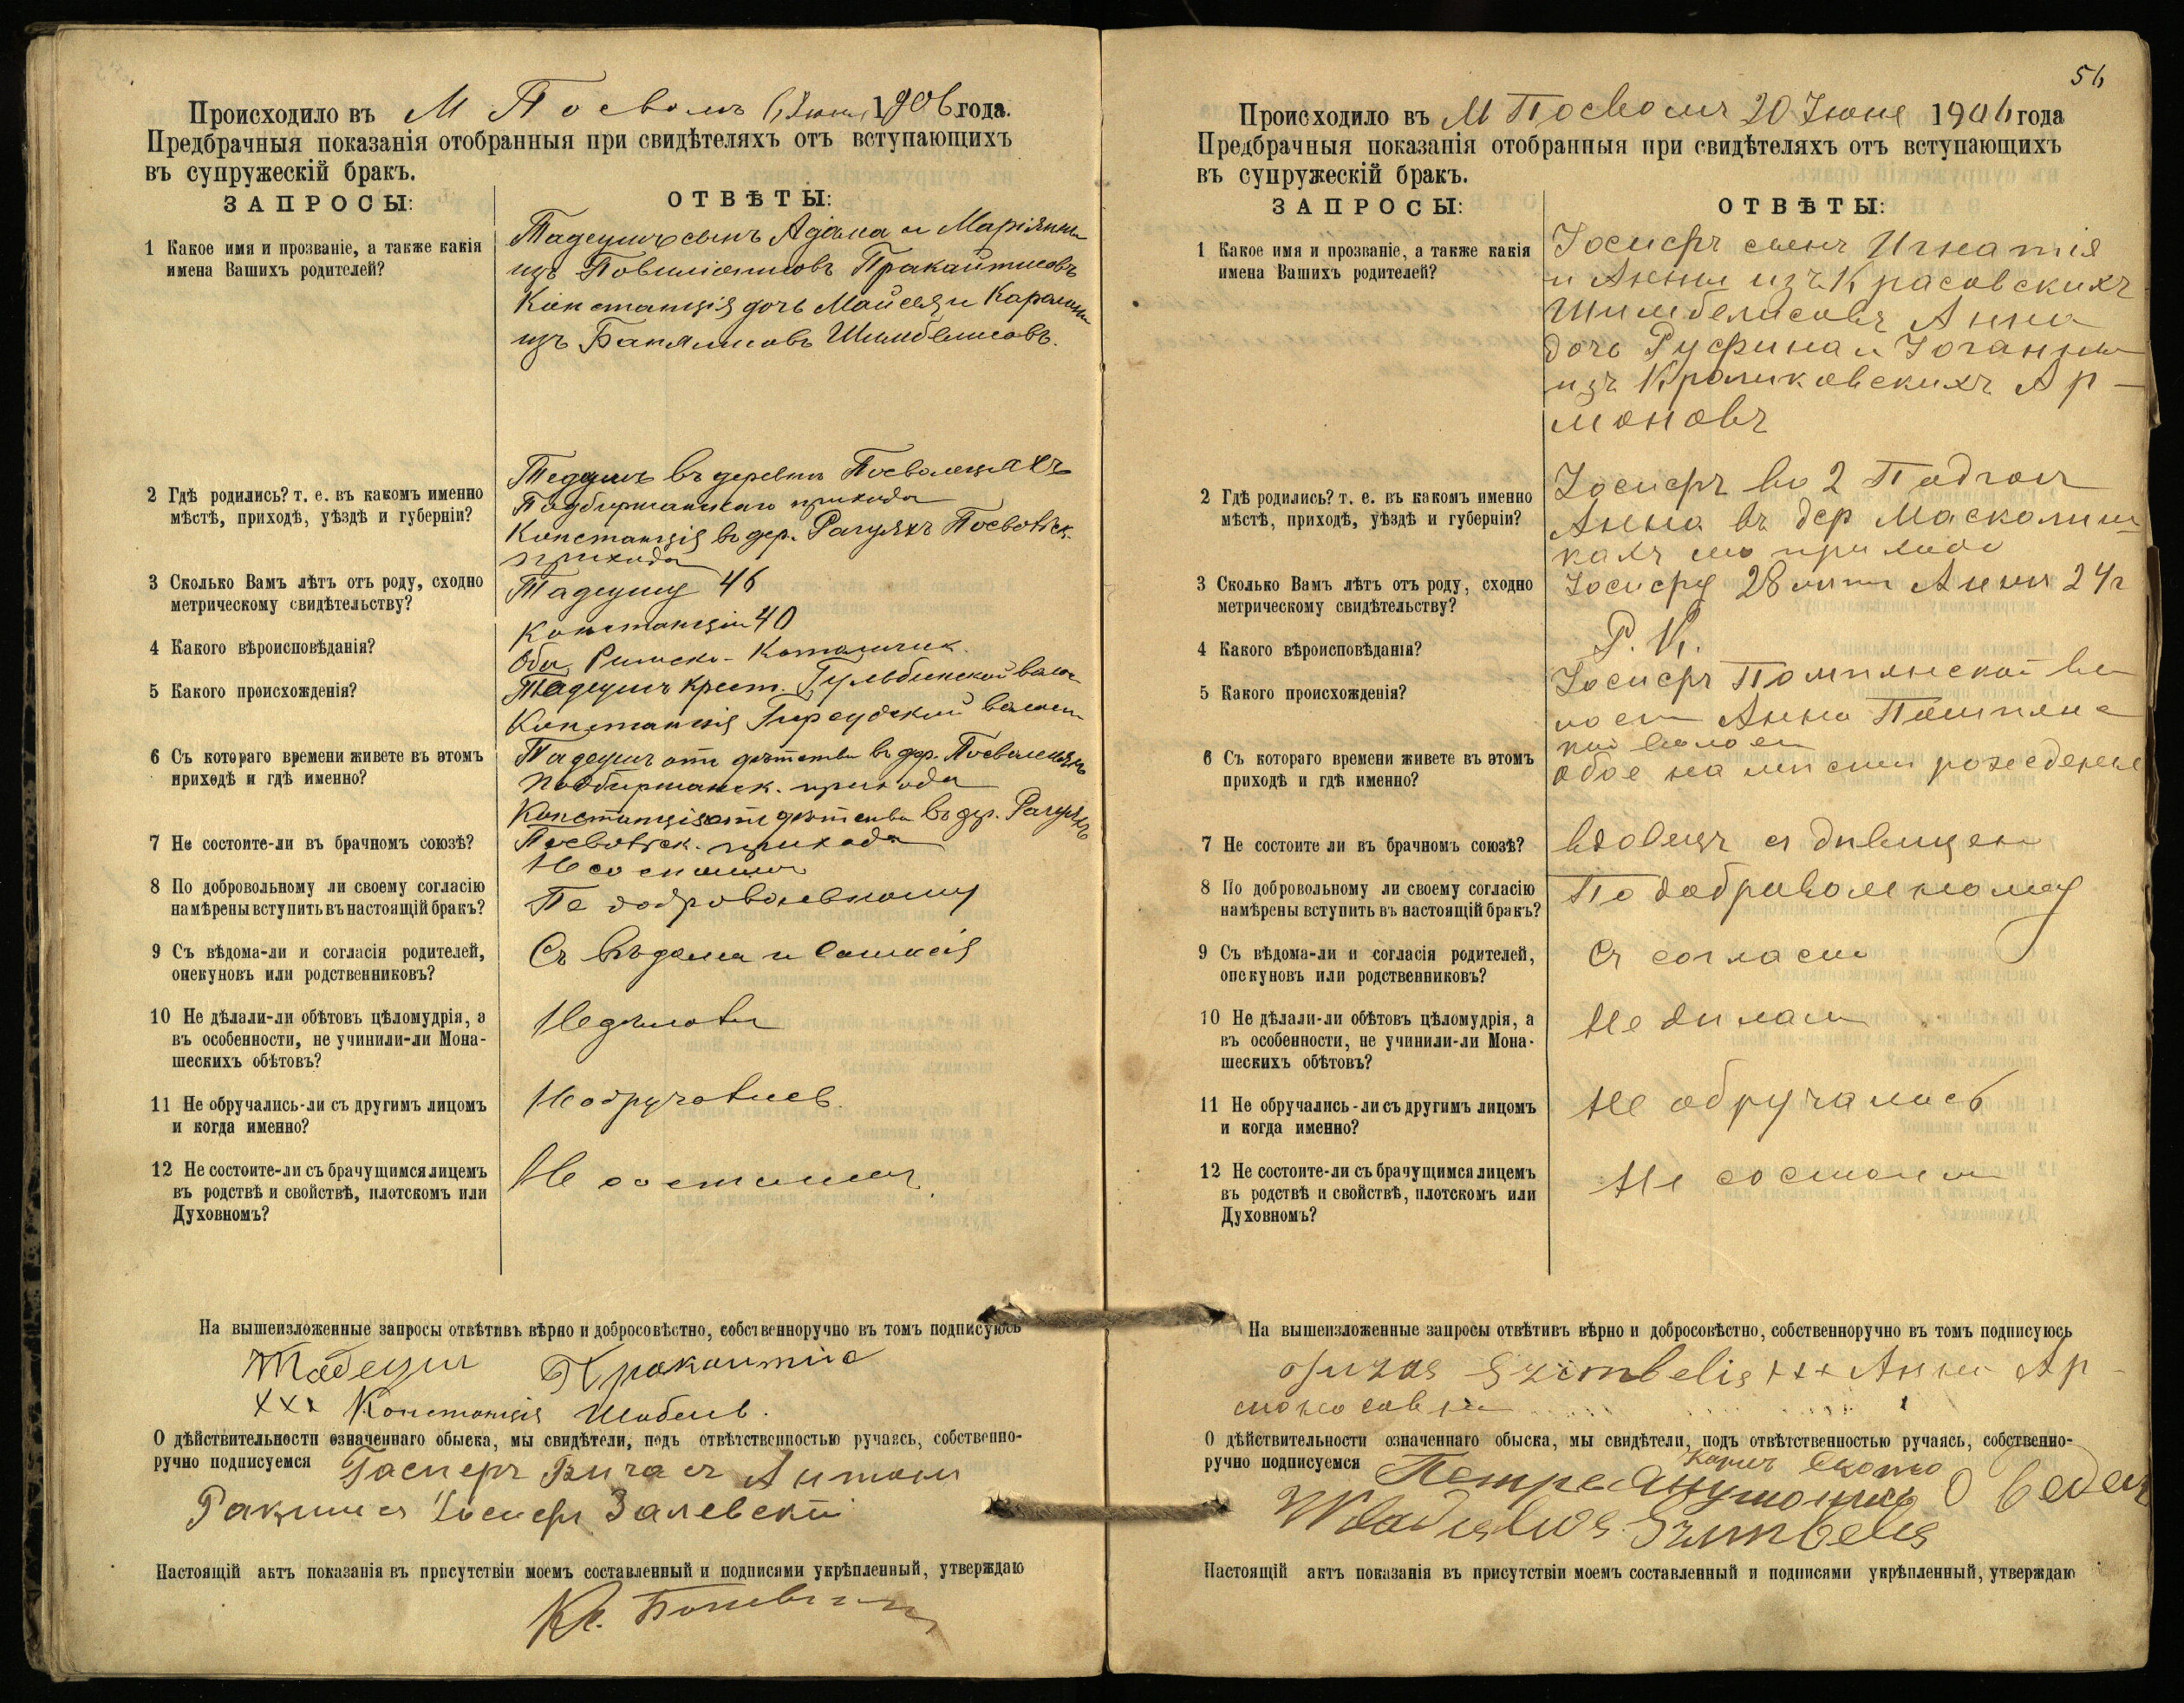 Происходило въ М Посволъ 6 Іюня 1906 года.
Предбрачныя показанія отобранныя при свидѣтеляхъ отъ вступающихъ
въ супружескій бракъ.
ЗАПРОСЫ:
ОТВѢТЫ:
1 Какое имя и прозваніе, а также какія
имена Вашихъ родителей?
Тадеушъ сынъ Адама и Маріянны
изъ Пракайтисовъ
Констанція дочь и Каролины
изъ Шимбелисовъ.
2 Гдѣ родились? т. е. въ какомъ именно
мѣстѣ, приходѣ, уѣздѣ и губерніи?
въ деревнѣ
прихода
Констанція въ дер. Рагуяхъ
прихода
3 Сколько Вамъ лѣтъ отъ роду, сходно
метрическому свидѣтельству?
Тадеушу 46
Констанціи 40
4 Какого вѣроисповѣданія?
Оба Римско-Католик.
5 Какого происхожденія?
Тадеушъ крест. Гульбинской волос
Констанція волост
6 Съ котораго времени живете въ этомъ
приходѣ и гдѣ именно?
Тадеушъ отъ дѣтства въ дер.
Подбиржанск. прихода
Констанція отъ дѣтства въ дер. Рагуяхъ
прихода
7 Не состоите-ли въ брачномъ союзѣ?
Не состоимъ
8 По добровольному ли своему согласію
намѣрены вступить въ настоящій бракъ?
По добровольному
9 Съ вѣдома-ли и согласія родителей,
опекуновъ или родственниковъ?
Съ вѣдома и согласія
10 Не дѣлали-ли обѣтовъ цѣломудрія, а
въ особенности, не учинили-ли Мона-
шескихъ обѣтовъ?
Недѣлали
11 Не обручались-ли съ другимъ лицомъ
и когда именно?
Необручались
12 Не состоите-ли съ брачущимся лицемъ
въ родствѣ и свойствѣ, плотскомъ или
Духовномъ?
Не состоимъ
На вышеизложенные запросы отвѣтивъ вѣрно и добросовѣстно, собственноручно въ томъ подписуюсь
Тадеуш Пракоитис
xxx Констанція
О дѣйствительности означеннаго обыска, мы свидѣтели, подъ отвѣтственностью ручаясь, собственно-
ручно подписуемся Гасперъ Антон
Іосифъ Залевскій
Настоящій актъ показанія въ присутствіи моемъ составленный и подписями укрѣпленный, утверждаю
Кс.
56
Происходило въ М Посволъ 20 Іюня 1906 года
Предбрачныя показанія отобранныя при свидѣтеляхъ отъ вступающихъ
въ супружескій бракъ.
ЗАПРОСЫ:
ОТВѢТЫ:
1 Какое имя и прозваніе, а также какія
имена Вашихъ родителей?
Іосифъ сынъ Игнатія
и Анны изъ Красовскихъ
Шимбелисовъ Анна
дочь Руфина и Іоганны
изъ Кроликовскихъ Ар-
моновъ
2 Гдѣ родились? т. е. въ какомъ именно
мѣстѣ, приходѣ, уѣздѣ и губерніи?
Іосифъ во 2
Анна въ дер
3 Сколько Вамъ лѣтъ отъ роду, сходно
метрическому свидѣтельству?
Іосифу 28 лѣтъ Анна 24 г
4 Какого вѣроисповѣданія?
Р. К.
5 Какого происхожденія?
Іосифъ Помпянской во
лост Анна Помпянс
кой волост
6 Съ котораго времени живете въ этомъ
приходѣ и гдѣ именно?
обое на мѣсти рожеденя
7 Не состоите ли въ брачномъ союзѣ?
вдовецъ съ дивицею
8 По добровольному ли своему согласію
намѣрены вступить въ настоящій бракъ?
По добровольному
9 Съ вѣдома-ли и согласія родителей,
опекуновъ или родственниковъ?
Съ согласи
10 Не дѣлали-ли обѣтовъ цѣломудрія, а
въ особенности, не учинили-ли Мона-
шескихъ обѣтовъ?
Не дилали
11 Не обручались-ли съ другимъ лицомъ
и когда именно?
Не обручались
12 Не состоите-ли съ брачущимся лицемъ
въ родствѣ и свойствѣ, плотскомъ или
Духовномъ?
Не состоим
На вышеизложенные запросы отвѣтивъ вѣрно и добросовѣстно, собственноручно въ томъ подписуюсь
Szimbelis +++ Анна Ар-
О дѣйствительности означеннаго обыска, мы свидѣтели, подъ отвѣтственностью ручаясь, собственно-
ручно подписуемся
Szimbelis
Настоящій актъ показанія въ присутствіи моемъ составленный и подписями укрѣпленный, утверждаю